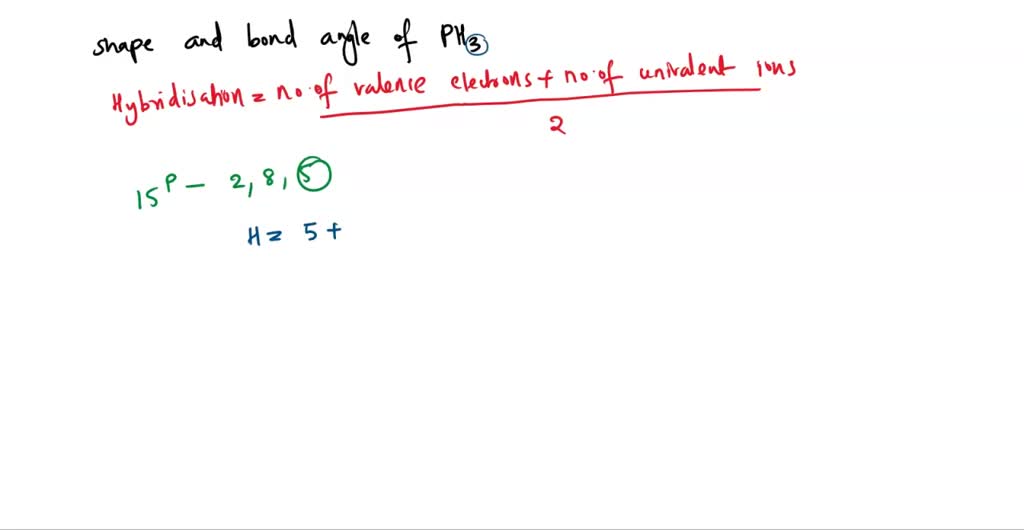 shape and bond angle of PH3
Hybridisation = no. of valence electrons + no. of univalent ions
2
15P - 2, 8, 5
H = 5 +